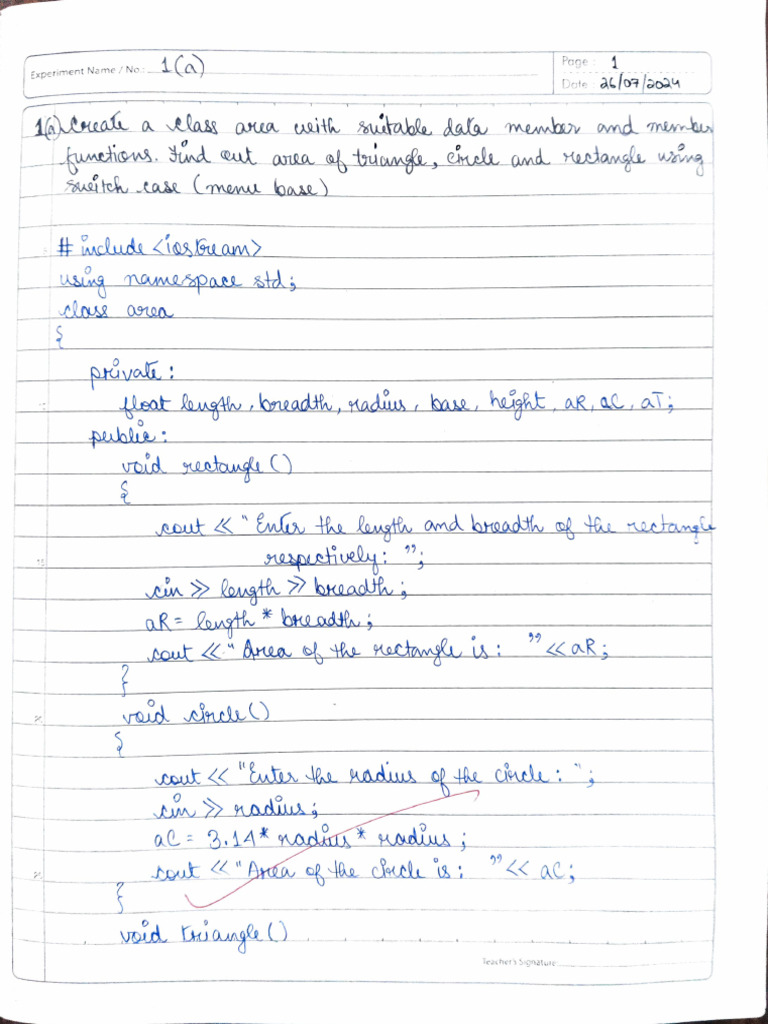 Experiment Name / No.: 1(a)
Page : 1
Date : 26/07/2024
1(a) Create a class area with suitable data member and member
functions. Find out area of triangle, circle and rectangle using
switch case (menu base)
# include <iostream>
using namespace std;
class area
{
private:
float length, breadth, radius, base, height, aR, aC, aT;
public:
void rectangle()
{
cout << "Enter the length and breadth of the rectangle
respectively: ";
cin >> length >> breadth;
aR = length * breadth;
cout << "Area of the rectangle is: " << aR;
}
void circle()
{
cout << "Enter the radius of the circle: ";
cin >> radius;
aC = 3.14 * radius * radius;
cout << "Area of the circle is: " << aC;
}
void triangle()
Teacher's Signature